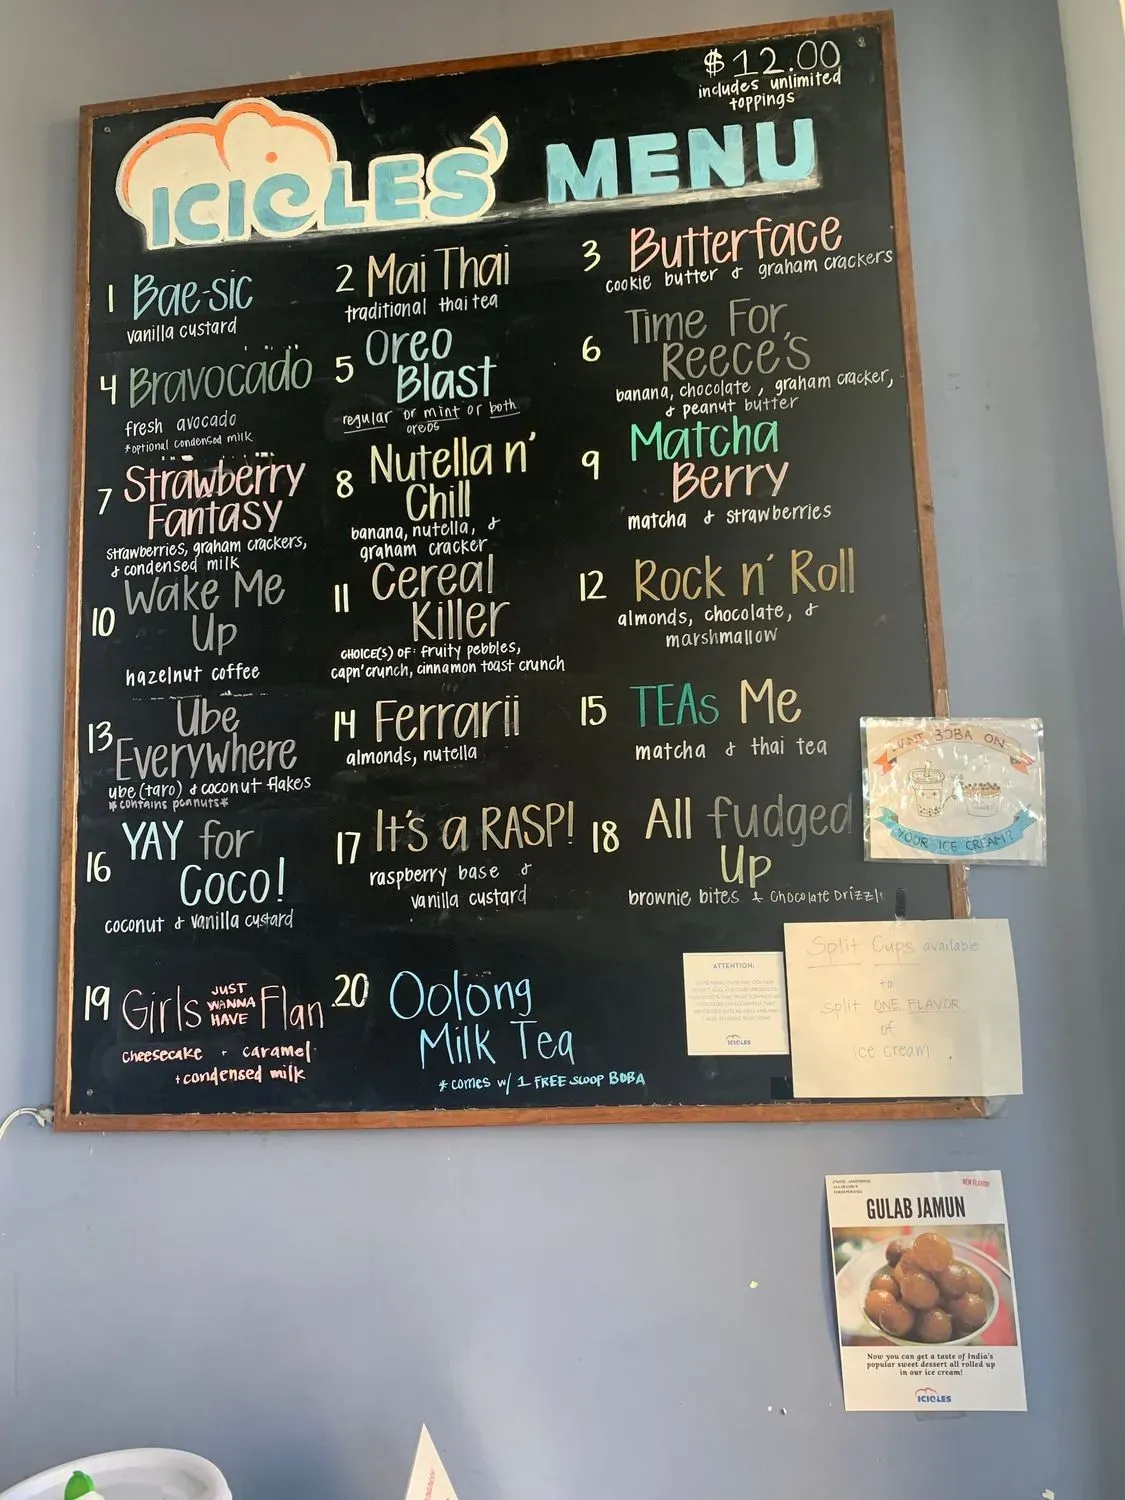 $12.00
includes unlimited
toppings
ICICLES' MENU
1 Bae-sic
vanilla custard
2 Mai Thai
traditional thai tea
3 Butterface
cookie butter & graham crackers
4 Bravocado
fresh avocado
*optional condensed milk
5 Oreo
Blast
regular or mint or both
oreos
6 Time For
Reece's
banana, chocolate, graham cracker,
& peanut butter
7 Strawberry
Fantasy
strawberries, graham crackers,
& condensed milk
8 Nutella n'
Chill
banana, nutella, &
graham cracker
9 Matcha
Berry
matcha & strawberries
10 Wake Me
Up
hazelnut coffee
11 Cereal
Killer
CHOICE(S) OF: fruity pebbles,
capn'crunch, cinnamon toast crunch
12 Rock n' Roll
almonds, chocolate, &
marshmallow
13 Ube
Everywhere
ube (taro) & coconut flakes
*contains peanuts*
14 Ferrarii
almonds, nutella
15 TEAs Me
matcha & thai tea
16 YAY for
Coco!
coconut & vanilla custard
17 It's a RASP!
raspberry base &
vanilla custard
18 All fudged
Up
brownie bites & Chocolate Drizzle
19 Girls JUST WANNA HAVE Flan
cheesecake + caramel
+condensed milk
20 Oolong
Milk Tea
* comes w/ 1 FREE SCOOP BOBA
WANT BOBA ON
YOUR ICE CREAM?
ATTENTION:
ICICLES
Split Cups available
to
split ONE FLAVOR
of
ice cream.
NEW FLAVOR!
GULAB JAMUN
Now you can get a taste of India's
popular sweet dessert all rolled up
in our ice cream!
ICICLES